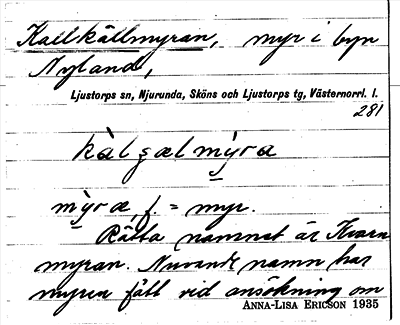 Kallkällmyran, myr i byn
Nyland,
Ljustorps sn, Njurunda, Sköns och Ljustorps tg, Västernorrl. l.
281
kàlgælmỳra
mỳræ, f. = myr.
Rätta namnet är Kvarn
myran. Nuvande namn har
myren fått vid ansökning om
ANNA-LISA ERICSON 1935